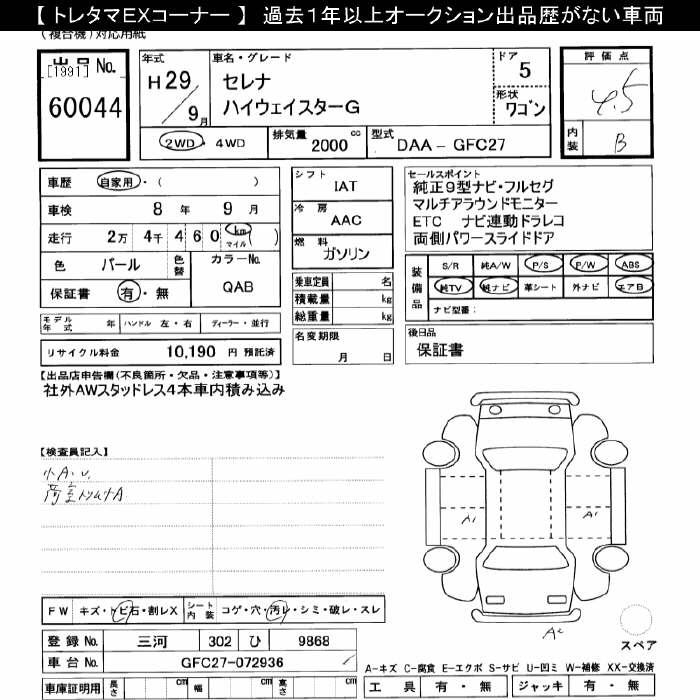 【 トレタマEXコーナー 】 過去1年以上オークション出品歴がない車両
(複合機)対応用紙
出品 No.
[1991]
60044
年式
H29/9月
車名・グレード
セレナ
ハイウェイスターG
ドア 5
形状 ワゴン
2WD・4WD
排気量 2000 cc
型式 DAA-GFC27
評価点
4.5
内装 B
車歴 自家用・( )
車検 8年 9月
走行 2万 4千 460 km マイル ( )
色 パール 色替
カラーNo. QAB
保証書 有・無
シフト IAT
冷房 AAC
燃料 ガソリン
乗車定員 名
積載量 kg
総重量 kg
名変期限
月 日
セールスポイント
純正9型ナビ・フルセグ
マルチアラウンドモニター
ETC ナビ連動ドラレコ
両側パワースライドドア
装備品 S/R 純A/W P/S P/W ABS
純TV 純ナビ 革シート 外ナビ エアB
ナビ型番:
モデル年式 年 ハンドル 左・右 ディーラー・並行
リサイクル料金 10,190 円 預託済
後日品
保証書
【出品店申告欄(不良箇所・欠品・注意事項等)】
社外AWスタッドレス4本車内積み込み
【検査員記入】
小A.U.
荷室トリムナA
A1
A1
A2
スペア
FW キズ・トビ石・割レX
シート内装 コゲ・穴・汚レ・シミ・破レ・スレ
登録No. 三河 302 ひ 9868
車台No. GFC27-072936
車庫証明用 長さ cm 幅 cm 高さ cm
A-キズ C-腐食 E-エクボ S-サビ U-凹ミ W-補修 XX-交換済
工具 有・無 ジャッキ 有・無